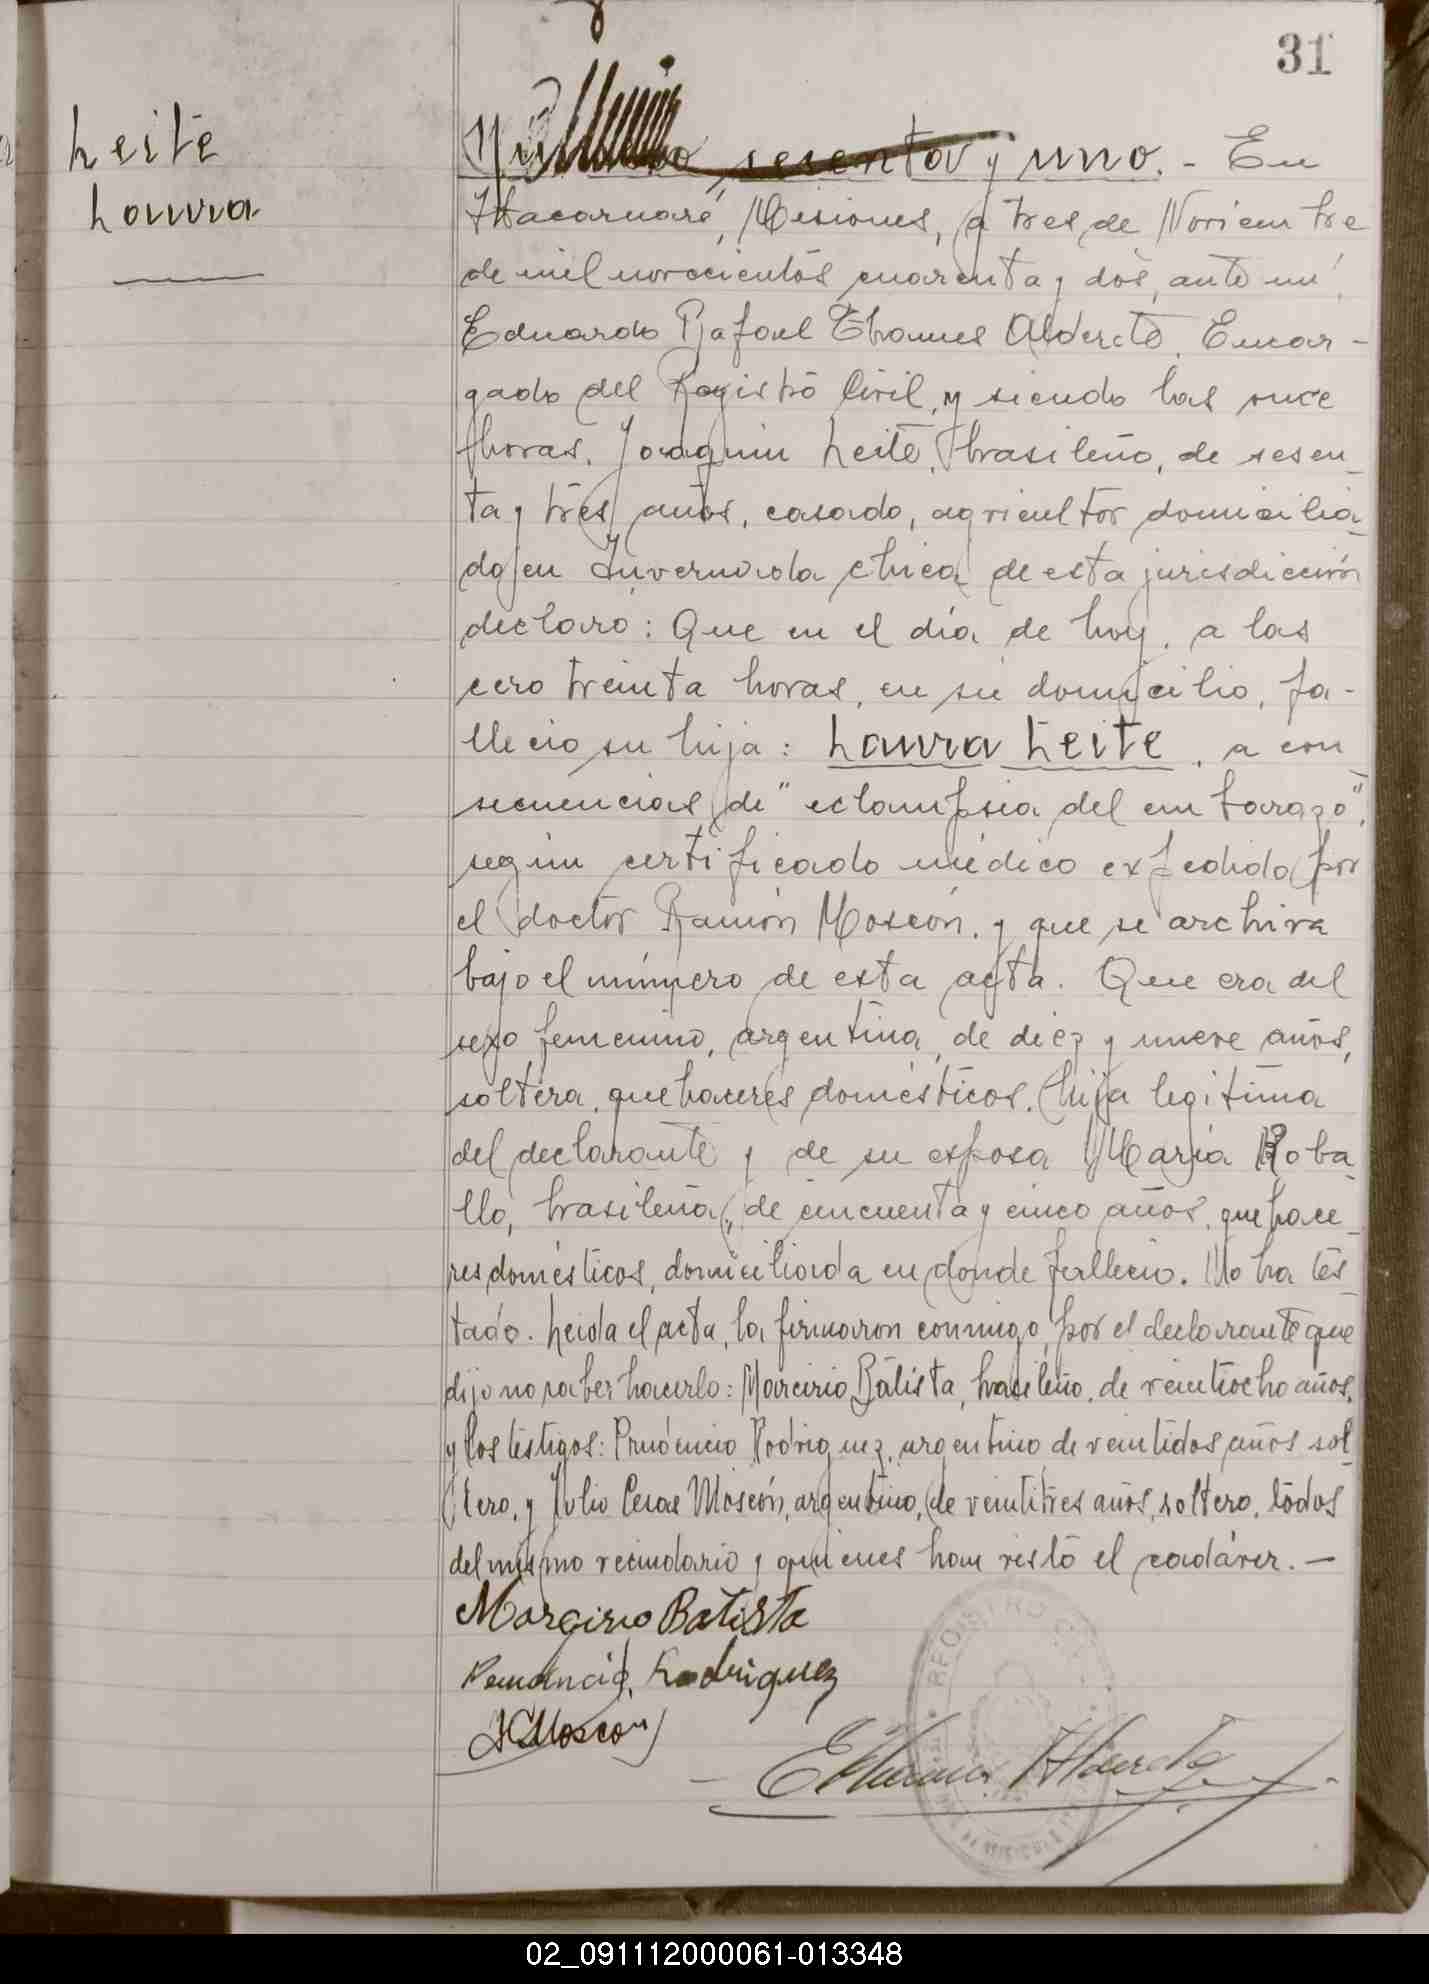 31
Leite
Laura
Número sesenta y uno. - En
Itacaruaré, Misiones, a tres de Noviembre
de mil novecientos cuarenta y dos, ante mí,
Eduardo Rafael Thames Alderete, Encar-
gado del Registro Civil, y siendo las once
horas, Joaquin Leite, brasileño, de sesen-
ta y tres años, casado, agricultor domicilia-
do en Invernada chica de esta jurisdicción
declaró: Que en el día de hoy, a las
cero treinta horas, en su domicilio, fa-
lleció su hija: Laura Leite, a con-
secuencias de "eclampsia del embarazo",
según certificado médico expedido por
el doctor Ramón Moscón, y que se archiva
bajo el número de esta acta. Que era del
sexo femenino, argentina, de diez y nueve años,
soltera, quehaceres domésticos, hija legitima
del declarante y de su esposa María Roba-
llo, brasileña, de cincuenta y cinco años, quehace-
res domésticos, domiciliada en donde falleció. No ha tes-
tado. Leida el acta, la firmaron conmigo, por el declarante que
dijo no saber hacerlo: Marcirio Batista, brasileño, de veintiocho años,
y los testigos: Prudencio Rodriguez, argentino de veintidos años sol-
tero, y Julio Cesar Moscón, argentino, de veintitres años, soltero, todos
del mismo vecindario y quienes han visto el cadáver. -
Marcirio Batista
Prudencio Rodriguez
JCMoscon
EThames Alderete
REGISTRO
02_091112000061-013348